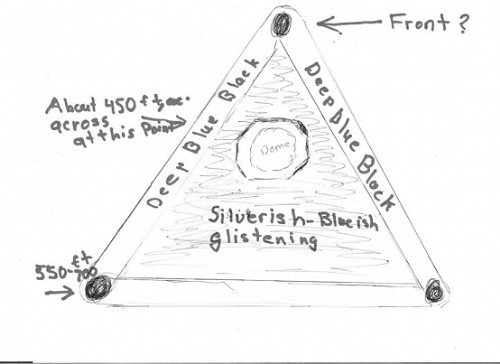 Front?
About 450 ft
across
at this Point
Deep Blue Black
Deep blue Black
Dome
Silverish-Blueish
glistening
ft
550-700